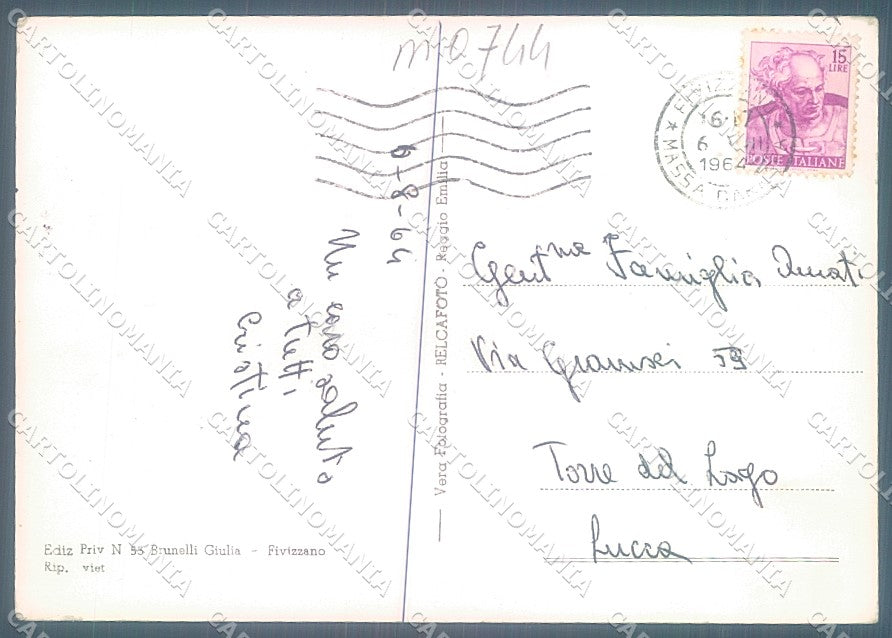 m0744
15
LIRE
POSTE ITALIANE
FIVIZZANO
16-17
6
1964
* MASSA CARR
6-8-64
Un caro saluto
a tutti
Cristina
Vera Fotografia - RELCAFOTO - Reggio Emilia
Gent.me Famiglia Amati
Via Gramsci 59
Torre del Lago
Lucca
Ediz Priv N 55 Brunelli Giulia - Fivizzano
Rip. viet
CARTOLINOMANIA